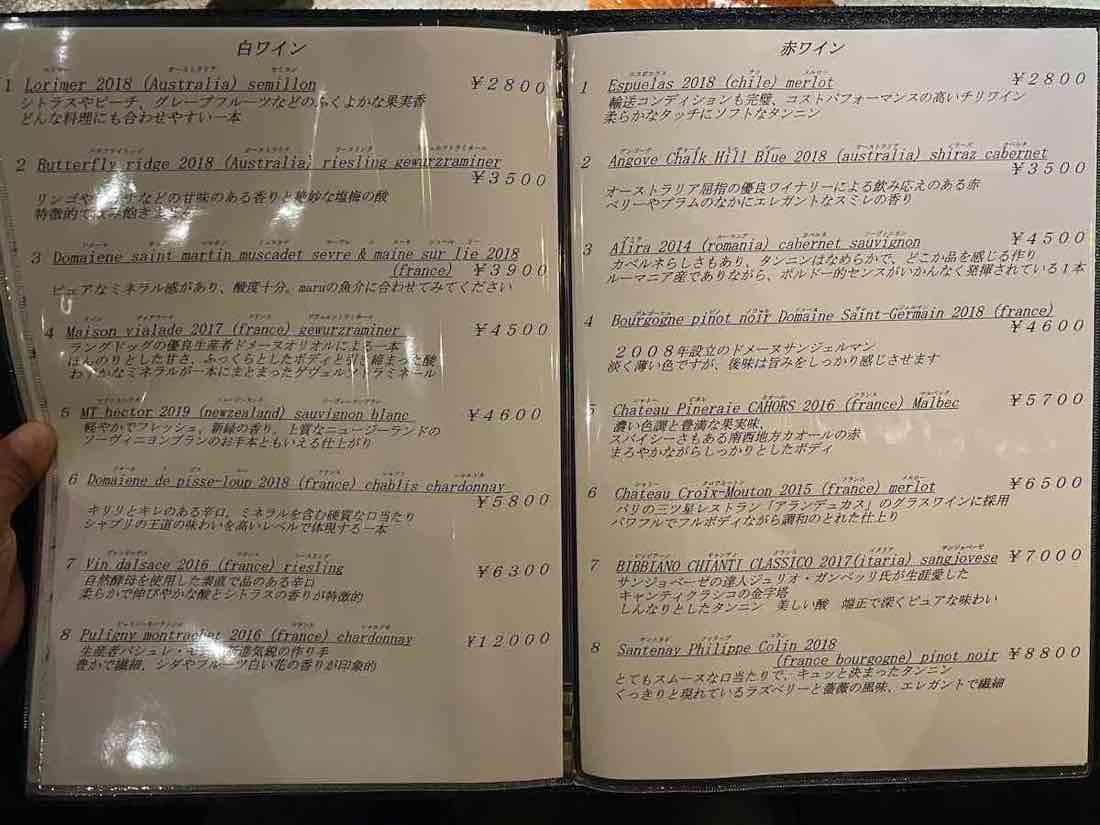 白ワイン
1 Lorimer 2018 (Australia) semillon ¥2800
シトラスやピーチ、グレープフルーツなどのふくよかな果実香
どんな料理にも合わせやすい一本
2 Butterfly ridge 2018 (Australia) riesling gewurzraminer
¥3500
リンゴや などの甘味のある香りと絶妙な塩梅の酸
特徴的で飲み飽きません
3 Domaiene saint martin muscadet sevre & maine sur lie 2018
(france) ¥3900
ピュアなミネラル感があり、酸度十分。maruの魚介に合わせてみてください
4 Maison vialade 2017 (france) gewurzraminer ¥4500
ラングドッグの優良生産者ドメーヌオリオルによる一本
ほんのりとした甘さ、ふっくらとしたボディと引き締まった酸
わずかなミネラルが一本にまとまったゲヴェルツトラミネール
5 MT hector 2019 (newzealand) sauvignon blanc ¥4600
軽やかでフレッシュ、新緑の香り、上質なニュージーランドの
ソーヴィニヨンブランのお手本ともいえる仕上がり
6 Domaiene de pisse-loup 2018 (france) chablis chardonnay
¥5800
キリリとキレのある辛口。ミネラルを含む硬質な口当たり
シャブリの王道の味わいを高いレベルで体現する一本
7 Vin dalsace 2016 (france) riesling ¥6300
自然酵母を使用した素直で品のある辛口
柔らかで伸びやかな酸とシトラスの香りが特徴的
8 Puligny montrachet 2016 (france) chardonnay ¥12000
生産者バシュレ・モノ 新進気鋭の作り手
豊かで繊細、シダやフルーツ白い花の香りが印象的
赤ワイン
エスポエラス チリ メルロー
1 Espuelas 2018 (chile) merlot ¥2800
輸送コンディションも完璧、コストパフォーマンスの高いチリワイン
柔らかなタッチにソフトなタンニン
2 Angove Chalk Hill Blue 2018 (australia) shiraz cabernet
¥3500
オーストラリア屈指の優良ワイナリーによる飲み応えのある赤
ベリーやプラムのなかにエレガントなスミレの香り
3 Alira 2014 (romania) cabernet sauvignon ¥4500
カベルネらしさもあり、タンニンはなめらかで、どこか品を感じる作り
ルーマニア産でありながら、ボルドー的センスがいかんなく発揮されている1本
4 Bourgogne pinot noir Domaine Saint-Germain 2018 (france)
¥4600
2008年設立のドメーヌサンジェルマン
淡く薄い色ですが、後味は旨みをしっかり感じさせます
5 Chateau Pineraie CAHORS 2016 (france) Malbec ¥5700
濃い色調と豊満な果実味、
スパイシーさもある南西地方カオールの赤
まろやかながらしっかりとしたボディ
6 Chateau Croix-Mouton 2015 (france) merlot ¥6500
パリの三ツ星レストラン「アランデュカス」のグラスワインに採用
パワフルでフルボディながら調和のとれた仕上り
7 BIBBIANO CHIANTI CLASSICO 2017(itaria) sangiovese ¥7000
サンジョベーゼの達人ジュリオ・ガンベッリ氏が生涯愛した
キャンティクラシコの金字塔
しんなりとしたタンニン 美しい酸 端正で深くピュアな味わい
8 Santenay Philippe Colin 2018
(france bourgogne) pinot noir ¥8800
とてもスムースな口当たりで、キュッと決まったタンニン
くっきりと現れているラズベリーと薔薇の風味、エレガントで繊細